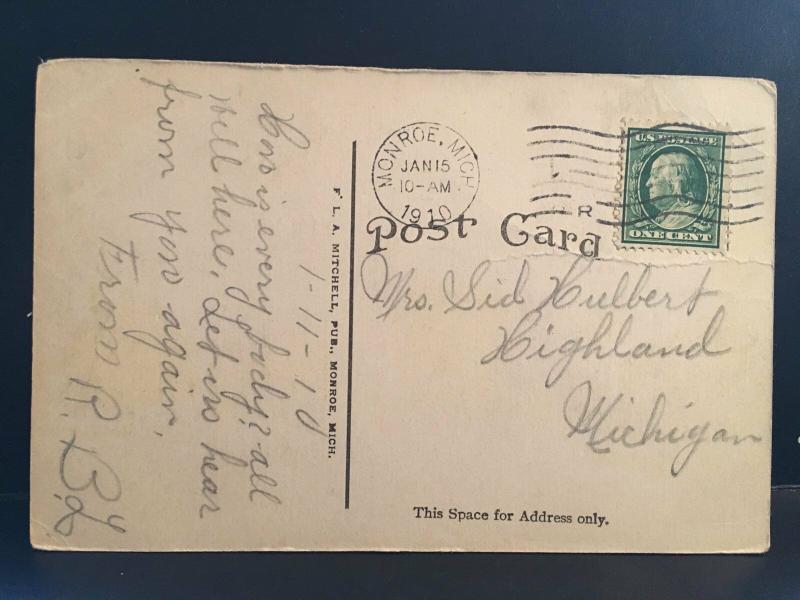 1-11-10
How is every body? all
well here. Let us hear
from you again.
From R.
F. L. A. MITCHELL, PUB., MONROE, MICH.
MONROE, MICH
JAN 15
10-AM
1910
R
U.S. POSTAGE
ONE CENT
Post Card
Mrs. Sid Hulbert
Highland
Michigan
This Space for Address only.